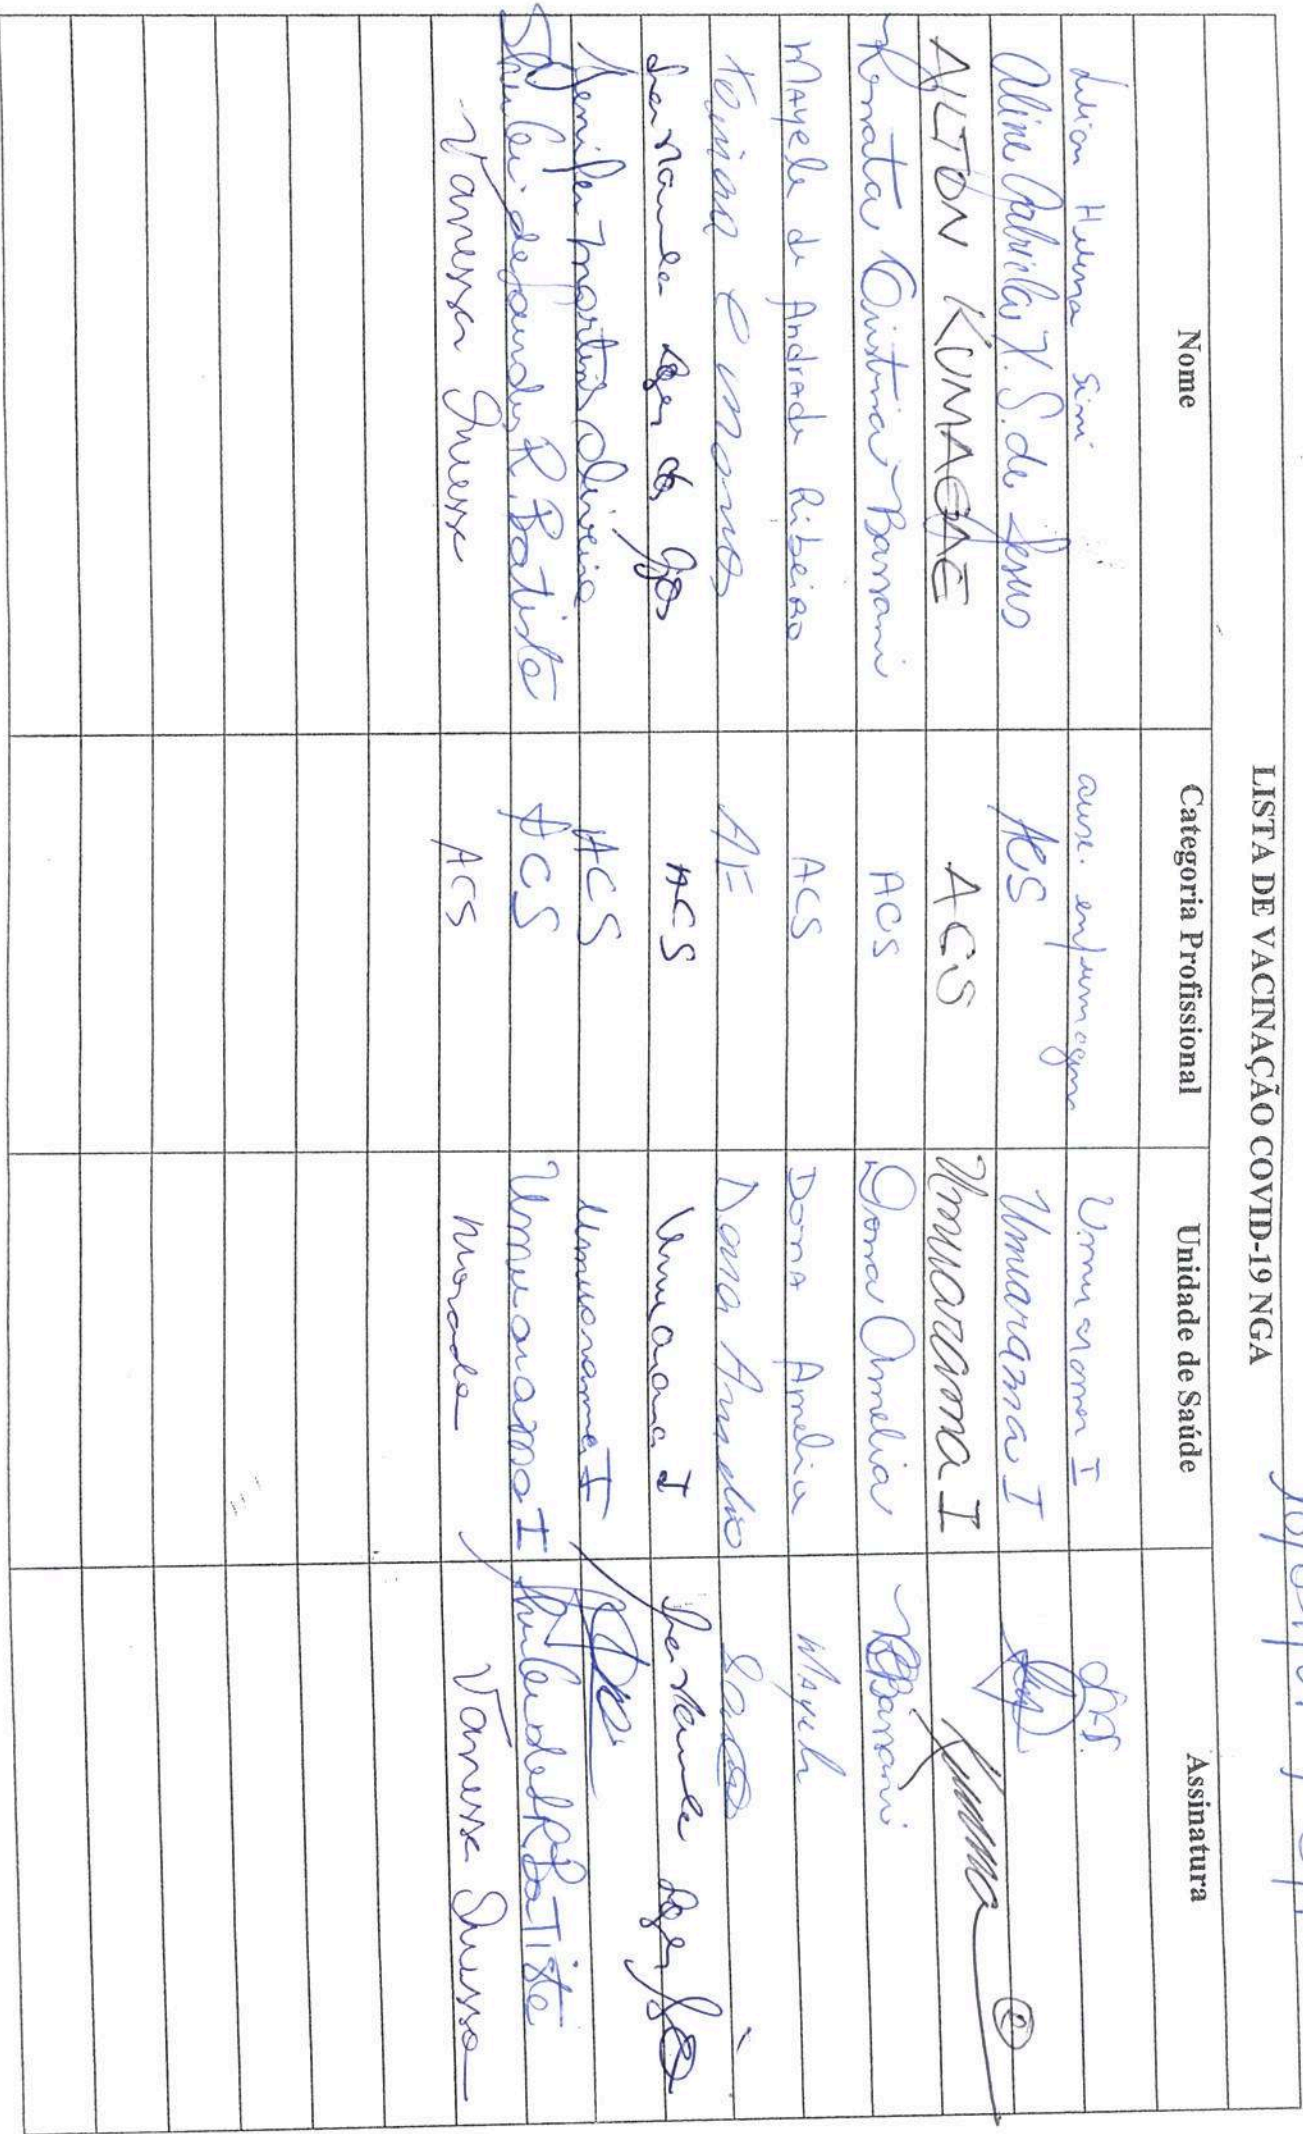 LISTA DE VACINAÇÃO COVID-19 NGA
Nome Categoria Profissional Unidade de Saúde Assinatura
Lilian Helena Simi aux. enfermagem Umuarama I
Aline Gabriela X. S. de Jesus ACS Umuarama I
AILTON KUMAGAE ACS Umuarama I
Renata Cristina Barrani ACS Dona Amelia RCBarrani
Mayele de Andrade Ribeiro ACS Dona Amelia Mayele
AE Dona Amelia
ACS Umuarama I
Jenifer Martins Oliveira ACS Umuarama I
Shirlei de Lourdes R. Batista ACS Umuarama I Shirlei de L R Batista
Vanessa ACS Morada Vanessa